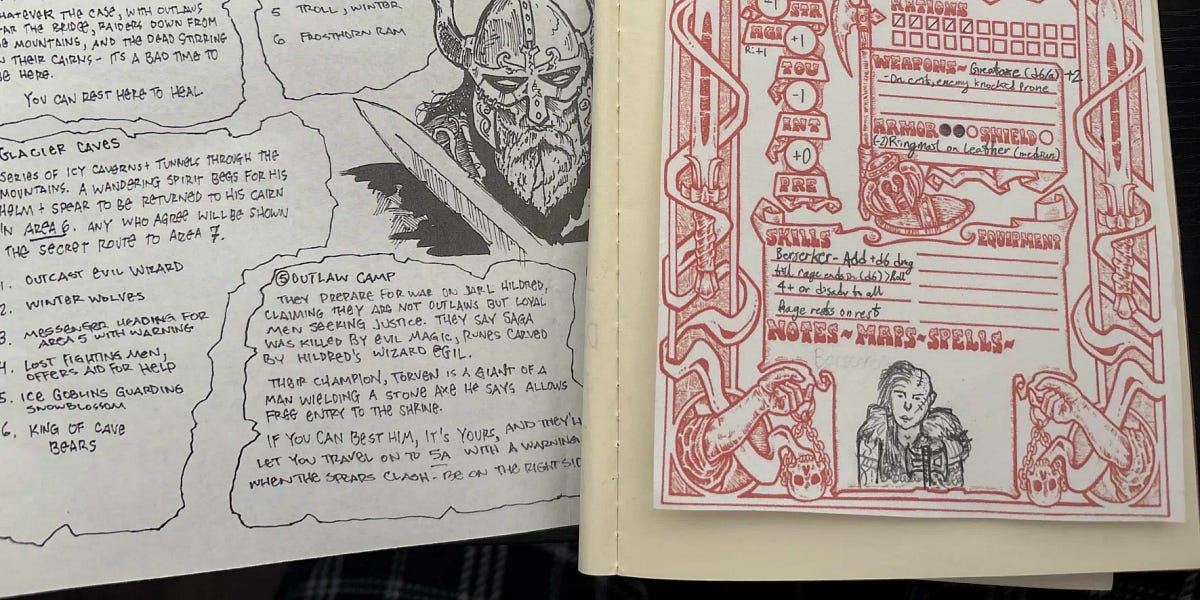 HATEVER THE CASE, WITH OUTLAWS
AR THE BRIDGE, RAIDERS DOWN FROM
E MOUNTAINS, AND THE DEAD STIRRING
N THEIR CAIRNS - IT'S A BAD TIME TO
BE HERE.
YOU CAN REST HERE TO HEAL.
5 TROLL, WINTER
6 FROSTHORN RAM
GLACIER CAVES
SERIES OF ICY CAVERNS + TUNNELS THROUGH THE
MOUNTAINS. A WANDERING SPIRIT BEGS FOR HIS
HELM + SPEAR TO BE RETURNED TO HIS CAIRN
IN AREA 6. ANY WHO AGREE WILL BE SHOWN
THE SECRET ROUTE TO AREA 7.
1. OUTCAST EVIL WIZARD
2. WINTER WOLVES
3. MESSENGER HEADING FOR
AREA 5 WITH WARNING
4. LOST FIGHTING MEN,
OFFERS AID FOR HELP
5. ICE GOBLINS GUARDING
SNOWBLOSSOM
6. KING OF CAVE
BEARS
⑤ OUTLAW CAMP
THEY PREPARE FOR WAR ON JARL HILDRED,
CLAIMING THEY ARE NOT OUTLAWS BUT LOYAL
MEN SEEKING JUSTICE. THEY SAY SAGA
WAS KILLED BY EVIL MAGIC, RUNES CARVED
BY HILDRED'S WIZARD EGIL.
THEIR CHAMPION, TORVEN IS A GIANT OF A
MAN WIELDING A STONE AXE HE SAYS ALLOWS
FREE ENTRY TO THE SHRINE.
IF YOU CAN BEST HIM, IT'S YOURS, AND THEY'LL
LET YOU TRAVEL ON TO 5A WITH A WARNING
WHEN THE SPEARS CLASH - BE ON THE RIGHT SID
+1 STR
AGI +1
R:+1
TOU
-1
INT
+0
PRE
RATIONS
WEAPONS~ Greataxe (d6/a) +2
-On crit, enemy knocked prone
ARMOR SHIELD
(-2) Ringmail on leather (medium)
SKILLS
Berserker - Add +d6 dmg
till rage ends in (d6) > Roll
4+ or disadv to all
Rage resets on rest
EQUIPMENT
NOTES~MAPS~SPELLS~
Berserker